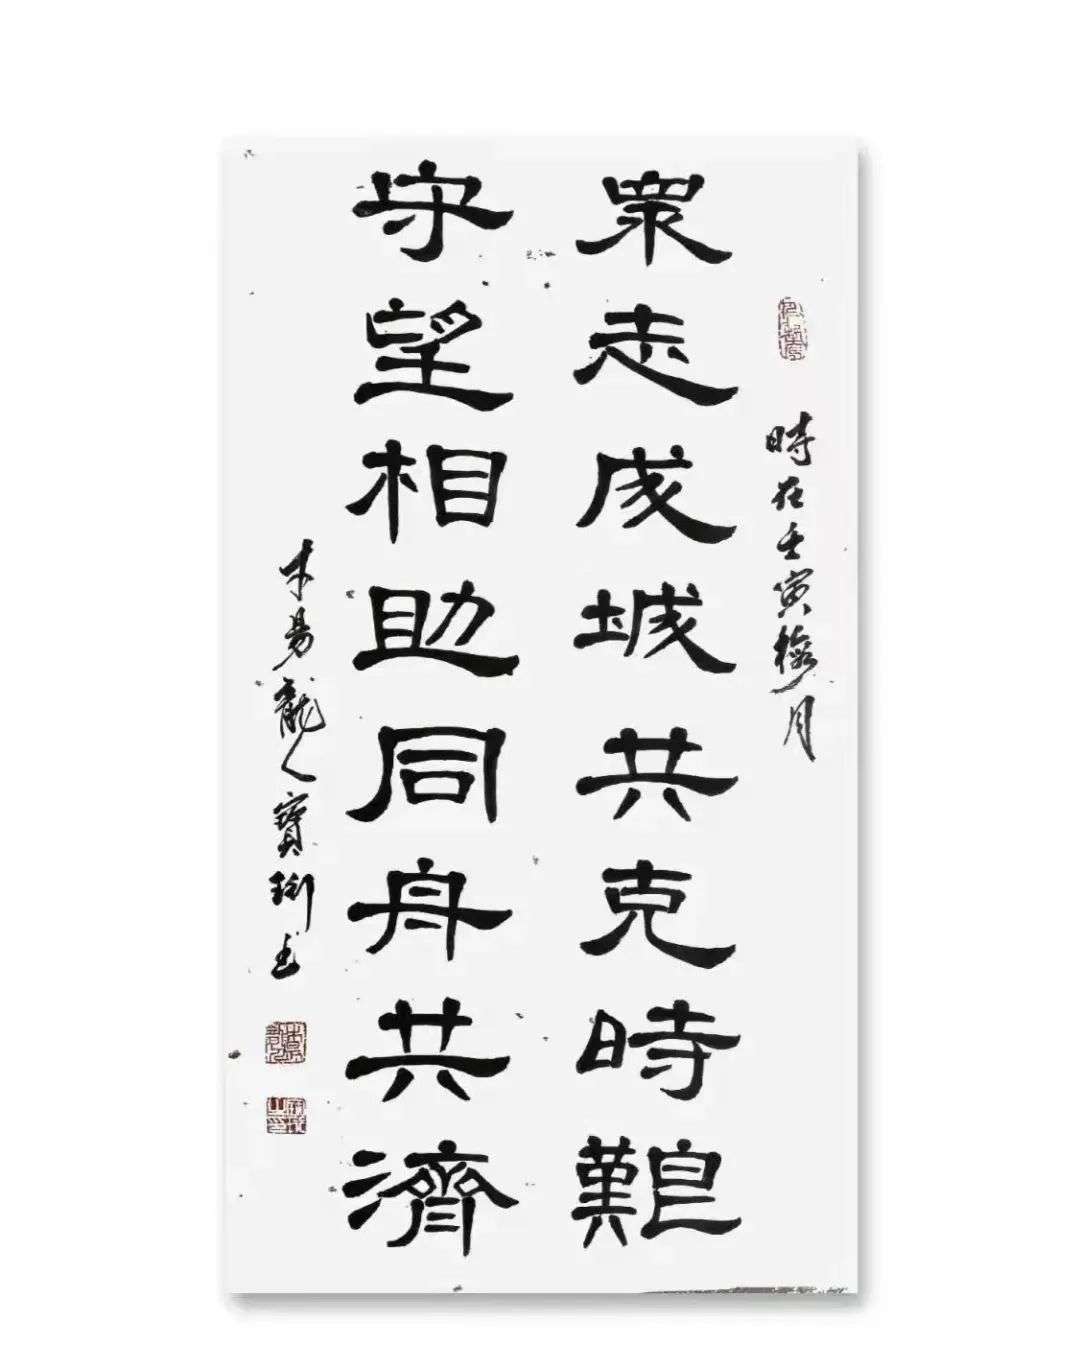 時在壬寅月
眾志成城共克時艱
守望相助同舟共濟
木易龍人寶書